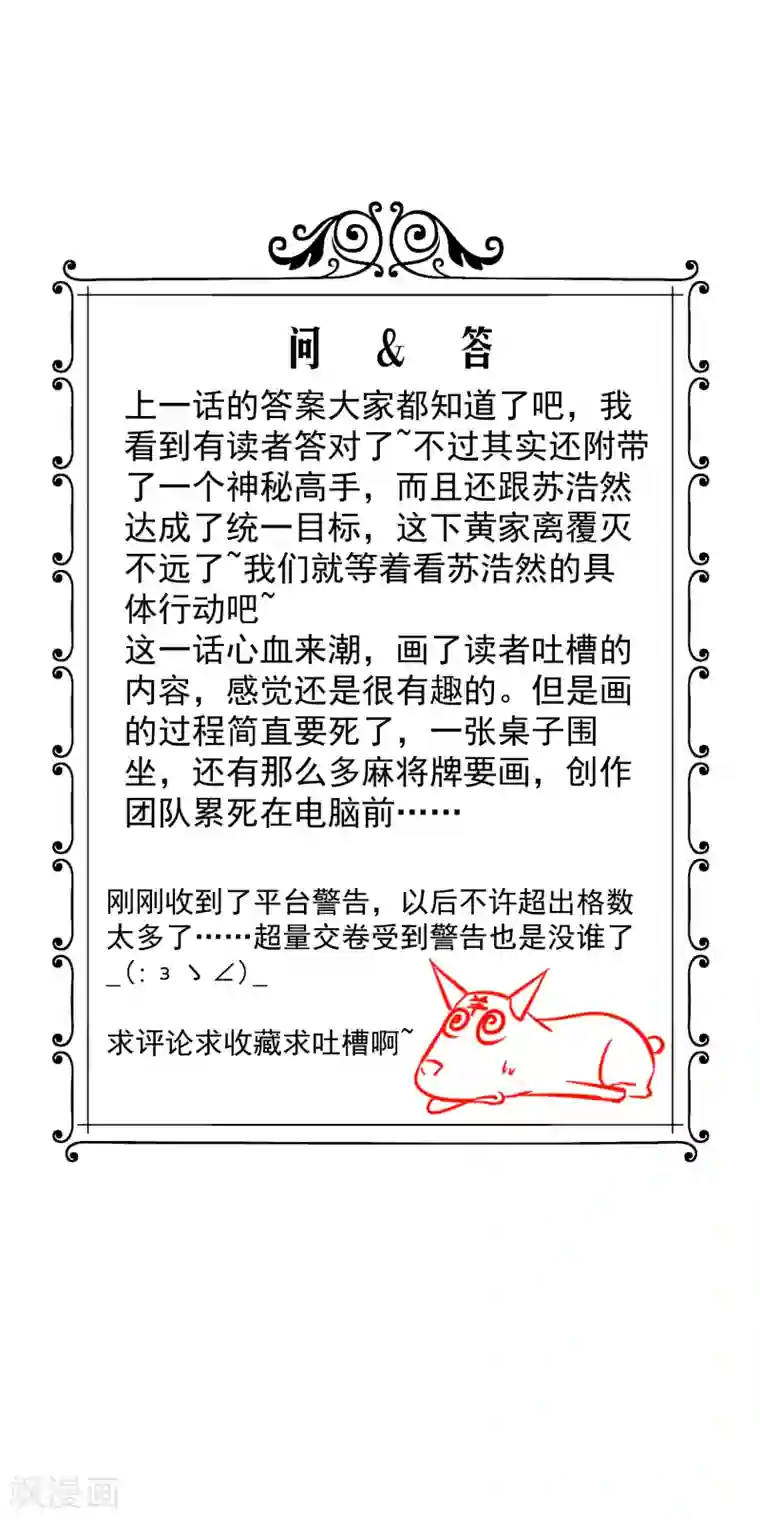 问 & 答
上一话的答案大家都知道了吧，我
看到有读者答对了~不过其实还附带
了一个神秘高手，而且还跟苏浩然
达成了统一目标，这下黄家离覆灭
不远了~我们就等着看苏浩然的具
体行动吧~
这一话心血来潮，画了读者吐槽的
内容，感觉还是很有趣的。但是画
的过程简直要死了，一张桌子围
坐，还有那么多麻将牌要画，创作
团队累死在电脑前……
刚刚收到了平台警告，以后不许超出格数
太多了……超量交卷受到警告也是没谁了
_(: з ゝ∠)_
求评论求收藏求吐槽啊~
飒漫画